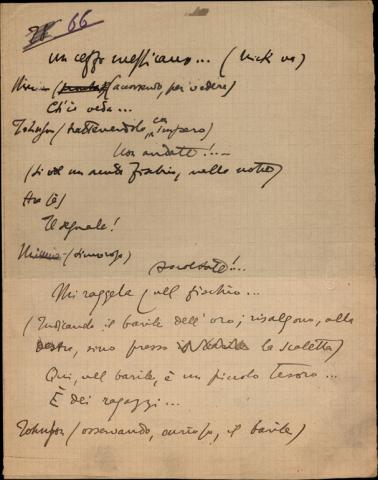 66
un ceffo messicano... (Nick va)
Minnie (accorrendo, per vedere)
Ch'io veda...
Johnson (trattenendola, con impero)
Non andate!...
(Si ode un acuto fischio, nella notte)
Ara (a se)
Il segnale!
Minnie (timorosa)
Ascoltate!...
Mi raggela quel fischio...
(Indicando il barile dell'oro; risalgono, alla
destra, sino presso la scaletta)
Qui, nel barile, è un piccolo tesoro...
È dei ragazzi...
Johnson (osservando, curioso, il barile)